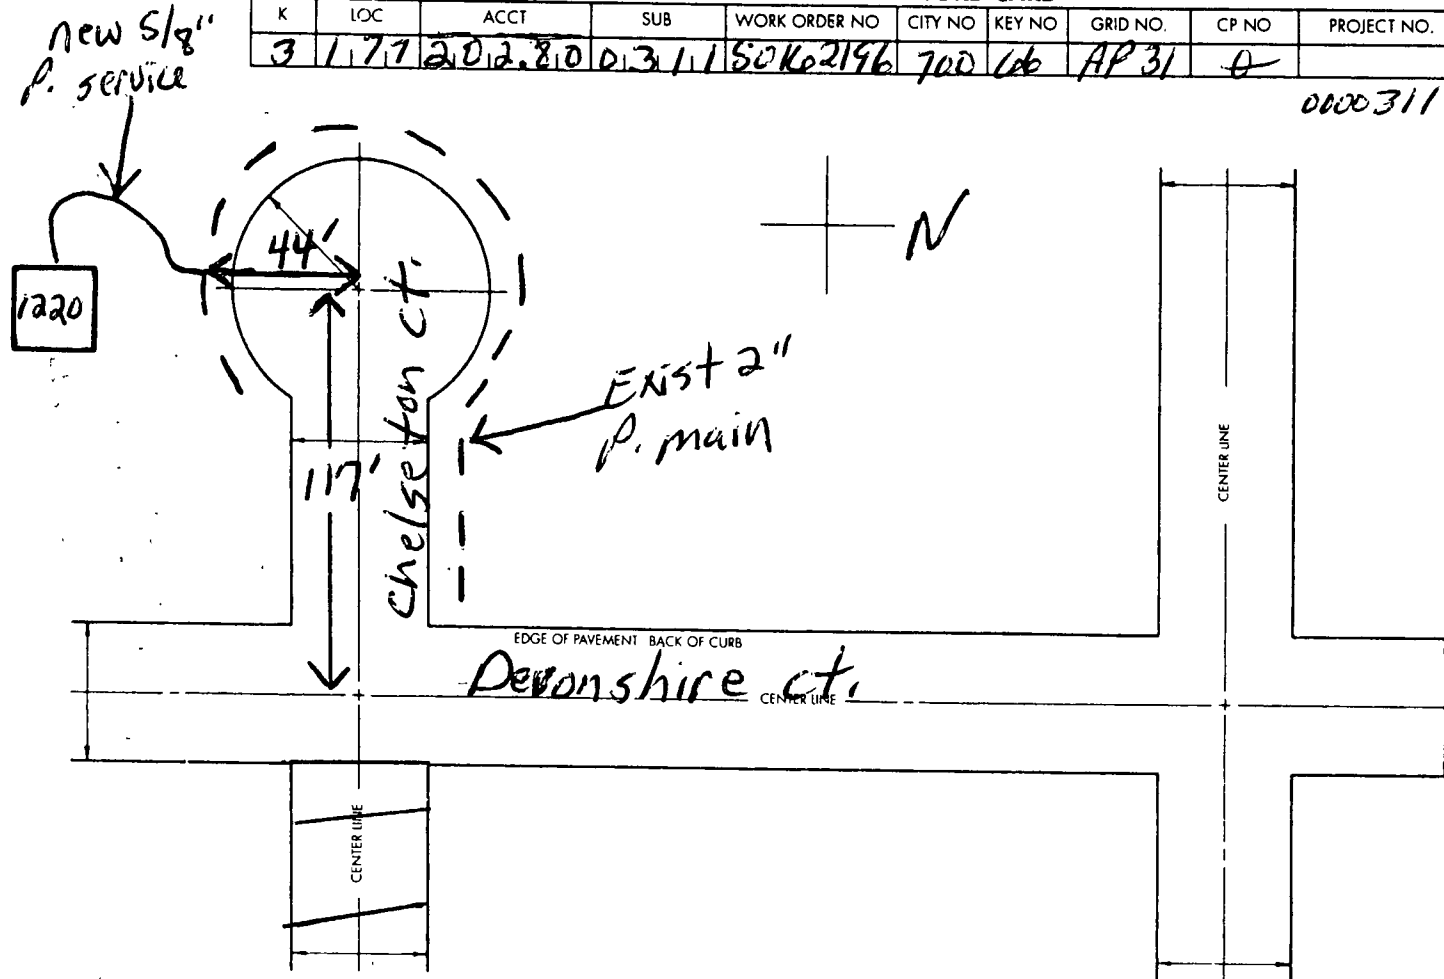 K LOC ACCT SUB WORK ORDER NO CITY NO KEY NO GRID NO. CP NO PROJECT NO.
3 177 202.80 0311 50K62196 700 AP 31 0
0000311
new 5/8"
P. service
44'
N
1220
Chelseton ct.
Exist 2"
P. main
117'
CENTER LINE
EDGE OF PAVEMENT BACK OF CURB
Devonshire ct.
CENTER LINE
CENTER LINE